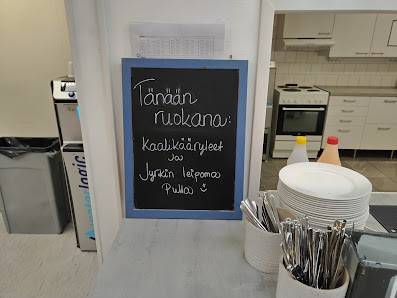 Tänään
ruokana:
Kaalikääryleet
ja
Jyrkin leipomaa
Pullaa